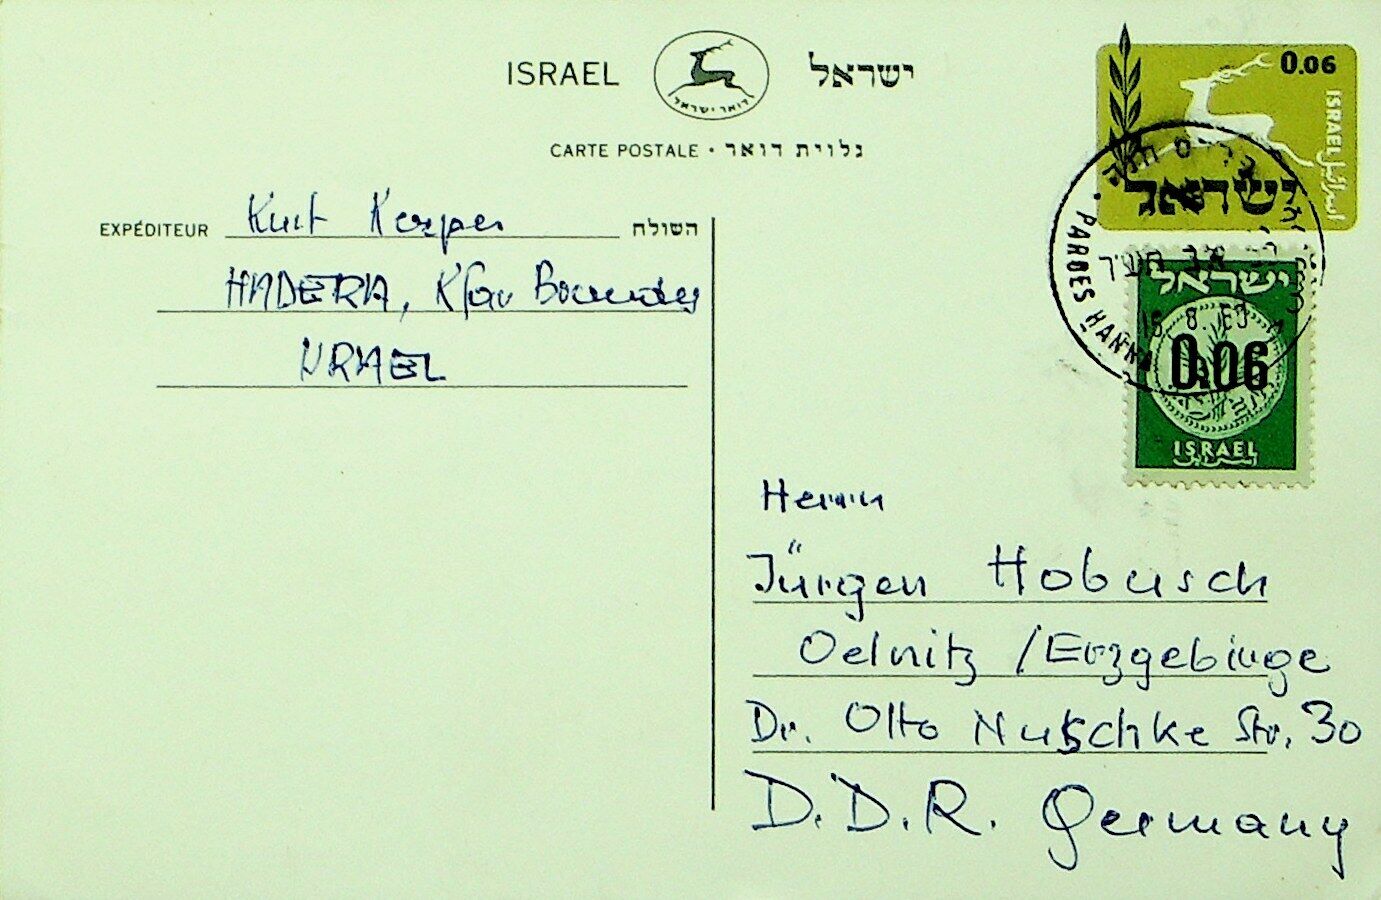 ISRAEL ישראל
דואר ישראל
CARTE POSTALE • גלוית דואר
0.06
ISRAEL
ישראל
פרדס חנה
PARDES HANNA
16. 8. 60
ישראל
0.06
ISRAEL
EXPÉDITEUR Kurt השולח
HADERA, Kfar
ISRAEL
Herrn
Jürgen Hobusch
Oelnitz / Erzgebirge
Dr. Otto Nuschke Str. 30
D.D.R. Germany